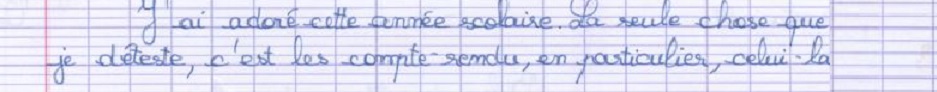 J'ai adoré cette année scolaire. La seule chose que
je déteste, c'est les compte-rendu, en particulier, celui-la